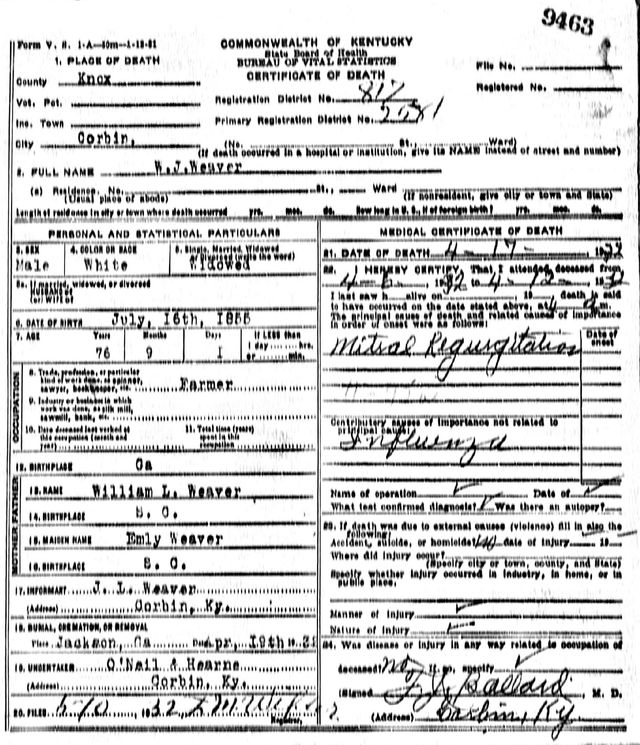 9463
Form V. S. 1-A—50m—1-13-31
COMMONWEALTH OF KENTUCKY
State Board of Health
BUREAU OF VITAL STATISTICS
CERTIFICATE OF DEATH
1. PLACE OF DEATH
File No.
County Knox
Registered No.
Registration District No. 817
Vot. Pct.
Inc. Town
Primary Registration District No.
City Corbin, (No. St., Ward)
(If death occurred in a hospital or institution, give its NAME instead of street and number)
2. FULL NAME W.J.Weaver
(a) Residence. No. St., Ward
(Usual place of abode) (If nonresident, give city or town and State)
Length of residence in city or town where death occurred yrs. mos. ds. How long in U. S., if of foreign birth? yrs. mos. ds.
PERSONAL AND STATISTICAL PARTICULARS
3. SEX 4. COLOR OR RACE 5. Single, Married, Widowed
or Divorced (write the word)
Male White Widowed
5a. If married, widowed, or divorced
(or) WIFE of
6. DATE OF BIRTH July, 16th, 1855
7. AGE Years Months Days If LESS than
1 day hrs.
or min.
76 9 1
OCCUPATION
8. Trade, profession, or particular
kind of work done, as spinner,
sawyer, bookkeeper, etc. Farmer
9. Industry or business in which
work was done, as silk mill,
sawmill, bank, etc.
10. Date deceased last worked at
this occupation (month and
year)
11. Total time (years)
spent in this
occupation
12. BIRTHPLACE Ga
MOTHER FATHER
13. NAME William L. Weaver
14. BIRTHPLACE S. C.
15. MAIDEN NAME Emly Weaver
16. BIRTHPLACE S. C.
17. INFORMANT J. L. Weaver
(Address) Corbin, Ky.
18. BURIAL, CREMATION, OR REMOVAL
Place Jackson, Ga Date Apr, 19th 19 32
19. UNDERTAKER O'Neil & Hearne
(Address) Corbin, Ky.
20. FILED 1932
Registrar
MEDICAL CERTIFICATE OF DEATH
21. DATE OF DEATH 4-17- 1932
22. I HEREBY CERTIFY, That I attended deceased from
I last saw h alive on 19 death is said
to have occurred on the date stated above, at m.
The principal cause of death and related causes of importance
in order of onset were as follows:
Date of
onset
Mitral Regurgitation
Contributory causes of importance not related to
principal cause:
Influenza
Name of operation Date of
What test confirmed diagnosis? Was there an autopsy?
23. If death was due to external causes (violence) fill in also the
following:
Accident, suicide, or homicide? No date of injury 19
Where did injury occur?
(Specify city or town, county, and State)
Specify whether injury occurred in industry, in home, or in
public place.
Manner of injury
Nature of injury
24. Was disease or injury in any way related to occupation of
deceased? no If so, specify
(Signed) Ballard, M. D.
(Address) Corbin, Ky